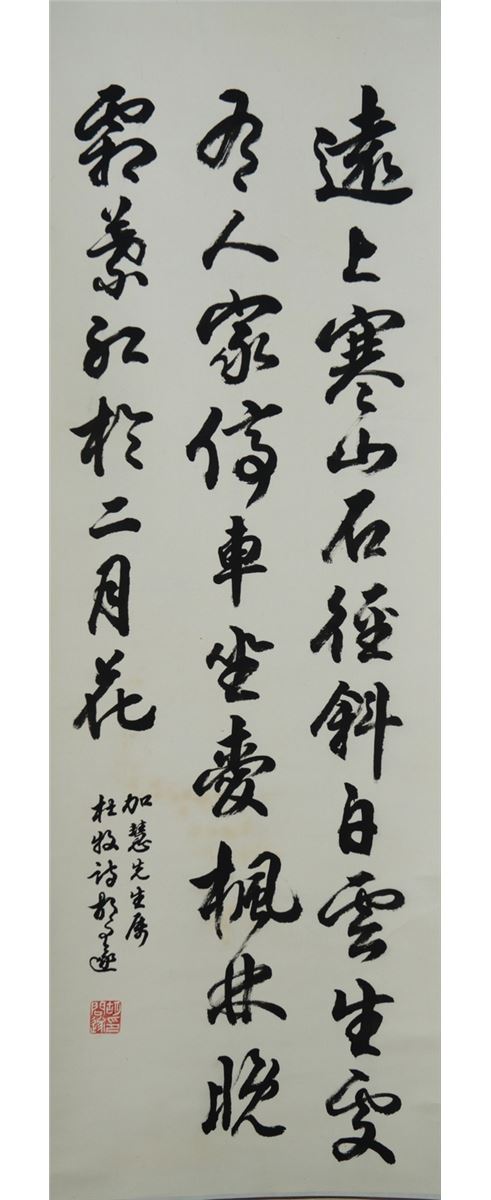 遠上寒山石徑斜白雲生處
有人家停車坐愛楓林晚
霜葉紅於二月花
加慧先生屬
杜牧詩 胡問遂